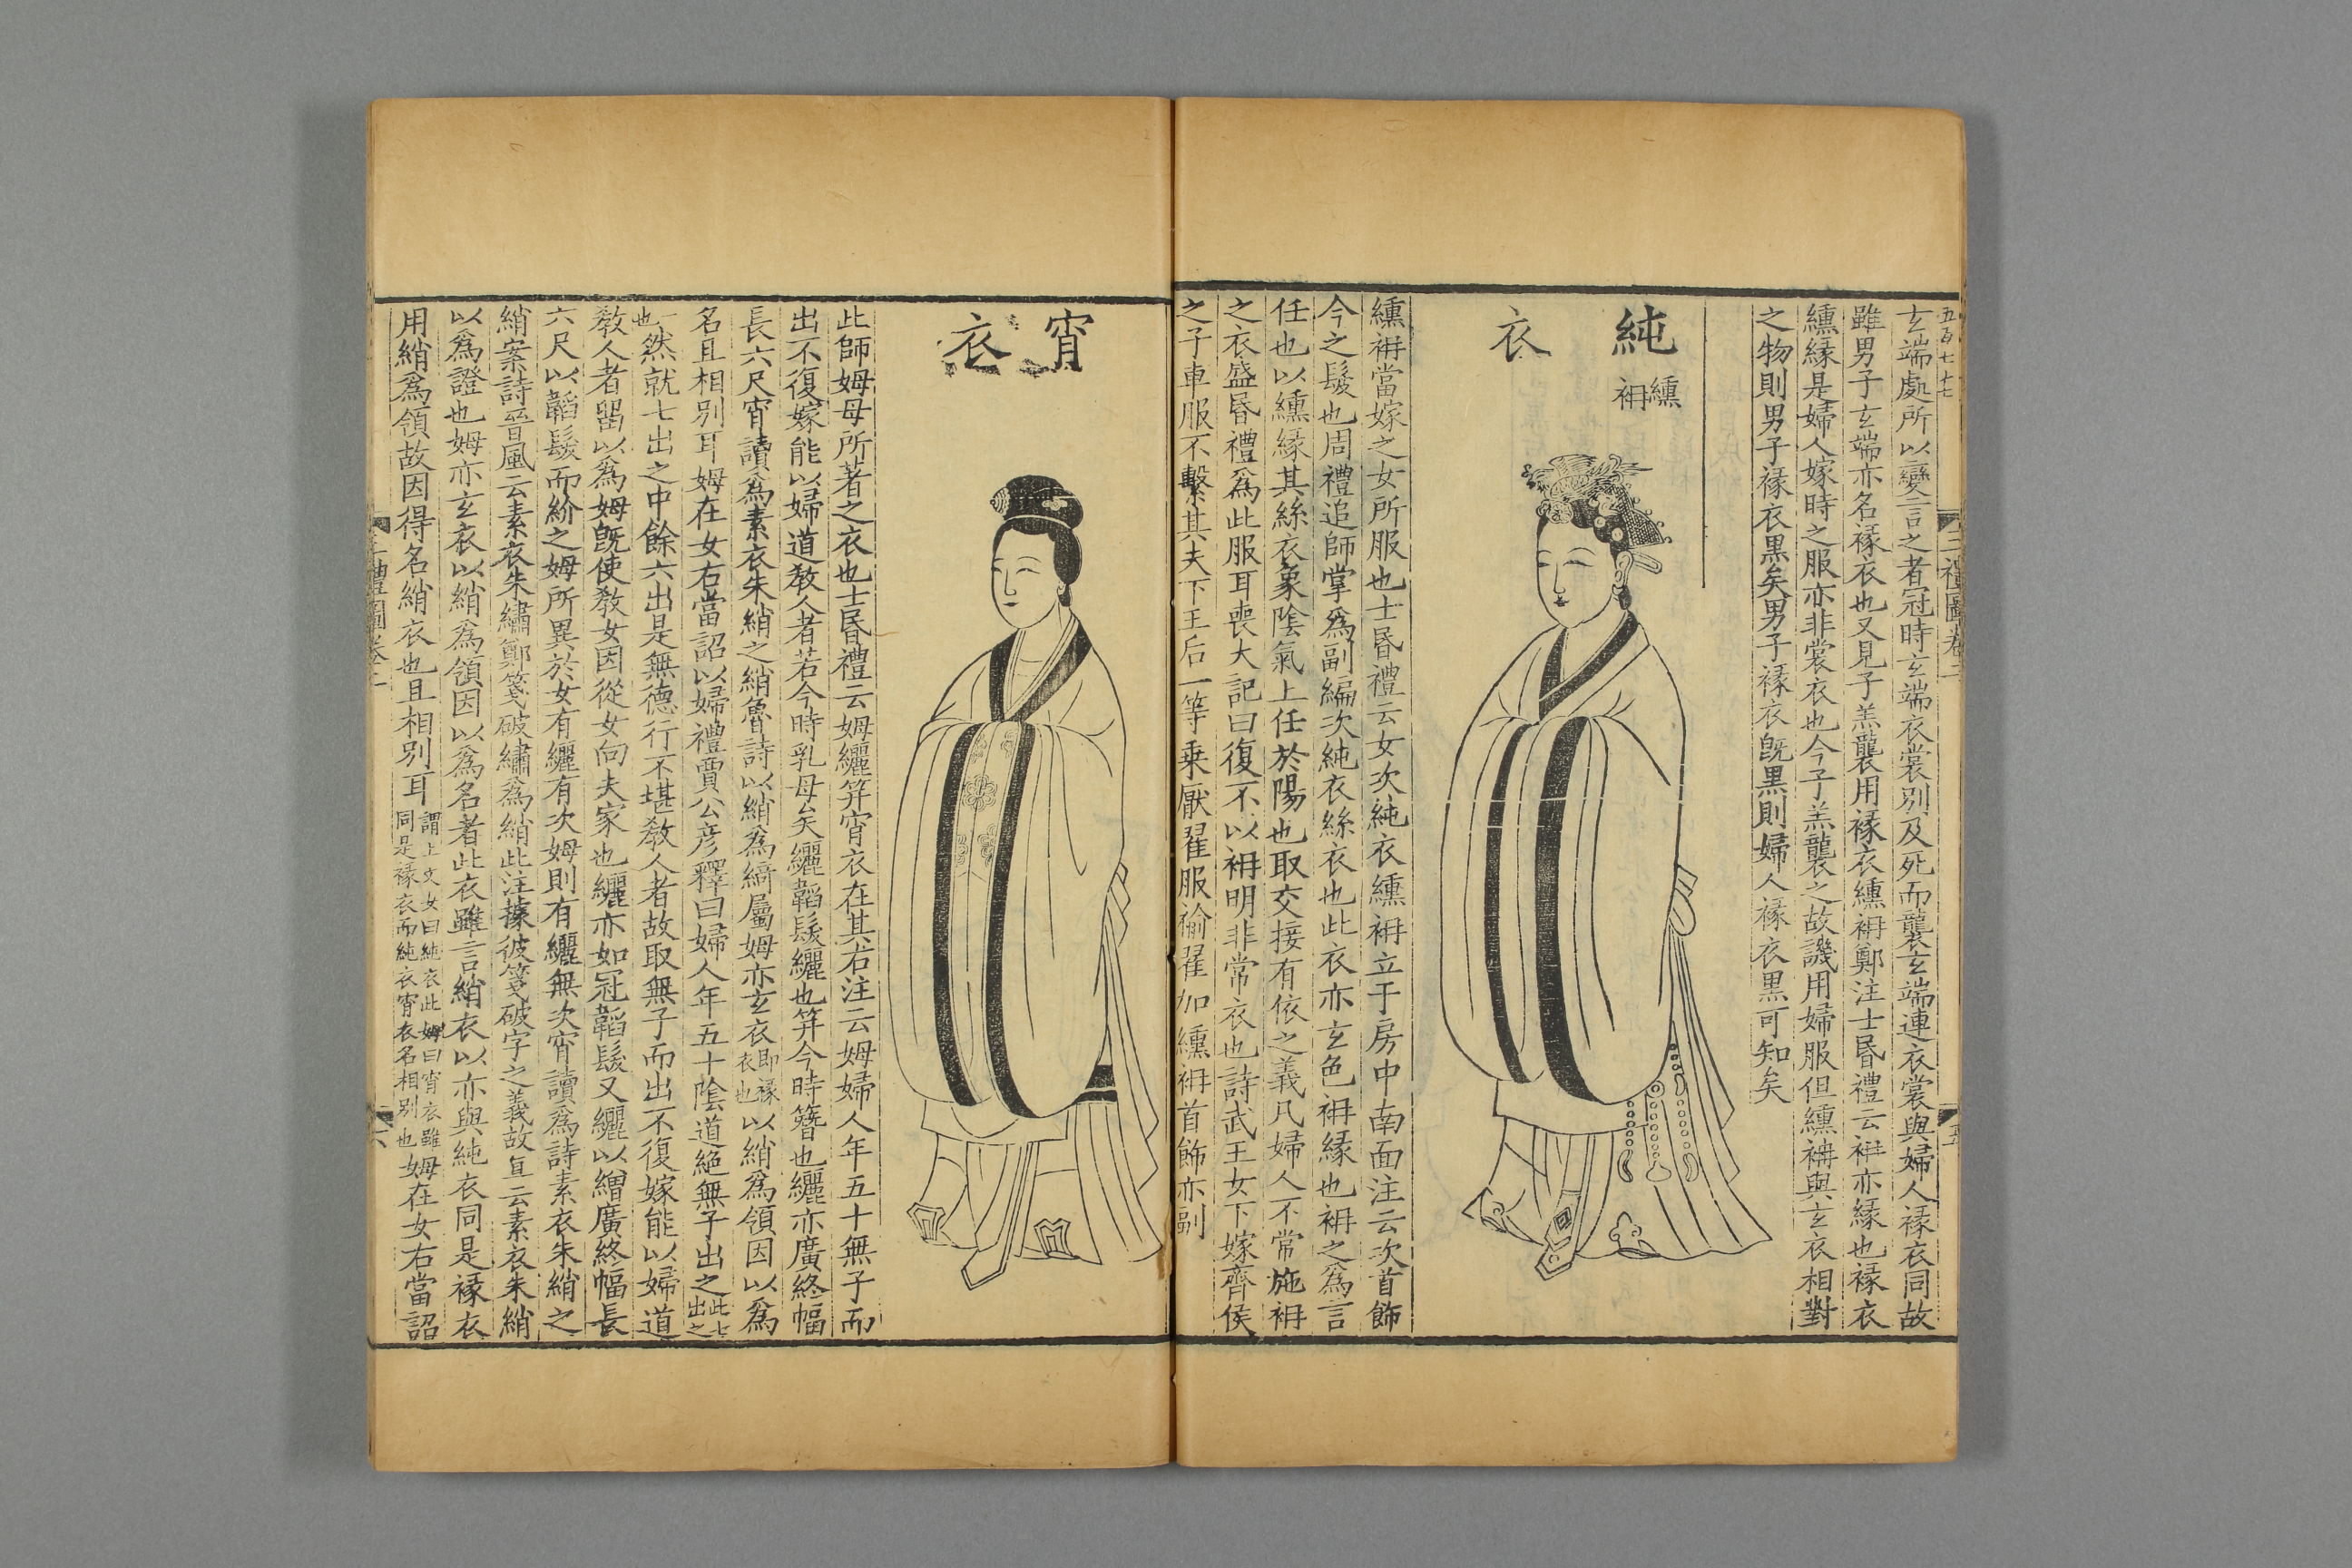 五百七十七
三禮圖卷二
五
玄端處所以變言之者冠時玄端衣裳别及死而襲玄端連衣裳與婦人褖衣同故
雖男子玄端亦名褖衣也又見子羔襲用褖衣纁袡鄭注士昬禮云袡亦緣也褖衣
纁緣是婦人嫁時之服亦非裳衣也今子羔襲之故譏用婦服但纁袡與玄衣相對
之物則男子褖衣黒矣男子褖衣旣黒則婦人褖衣黒可知矣
純衣
纁袡
纁袡當嫁之女所服也士昬禮云女次純衣纁袡立于房中南面注云次首飾
今之髲也周禮追師掌爲副編次純衣絲衣也此衣亦玄色袡緣也袡之爲言
任也以纁緣其絲衣象陰氣上任於陽也取交接有依之義凡婦人不常施袡
之衣盛昬禮爲此服耳喪大記曰復不以袡明非常衣也詩武王女下嫁齊侯
之子車服不繫其夫下王后一等乗厭翟服褕翟加纁袡首飾亦副
宵衣
此師姆母所著之衣也士昬禮云姆纚笄宵衣在其右注云姆婦人年五十無子而
出不復嫁能以婦道敎人者若今時乳母矣纚韜髮纚也笄今時簪也纚亦廣終幅
長六尺宵讀爲素衣朱綃之綃魯詩以綃爲綺屬姆亦玄衣即褖衣也以綃爲領因以爲
名且相別耳姆在女右當詔以婦禮賈公彦釋曰婦人年五十陰道絶無子出之此七出之
一也然就七出之中餘六出是無德行不堪敎人者故取無子而出不復嫁能以婦道
敎人者留以爲姆旣使敎女因從女向夫家也纚亦如冠韜髮又纚以繒廣終幅長
六尺以韜髮而紒之姆所異於女有纚有次姆則有纚無次宵讀爲詩素衣朱綃之
綃案詩晉風云素衣朱繡鄭箋破繡爲綃此注據彼箋破字之義故直云素衣朱綃
以爲證也姆亦玄衣以綃爲領因以爲名者此衣雖言綃衣以亦與純衣同是褖衣
用綃爲領故因得名綃衣也且相别耳謂上文女曰純衣此姆曰宵衣雖同是褖衣而純衣宵衣名相别也姆在女右當詔
三禮圖卷二
六